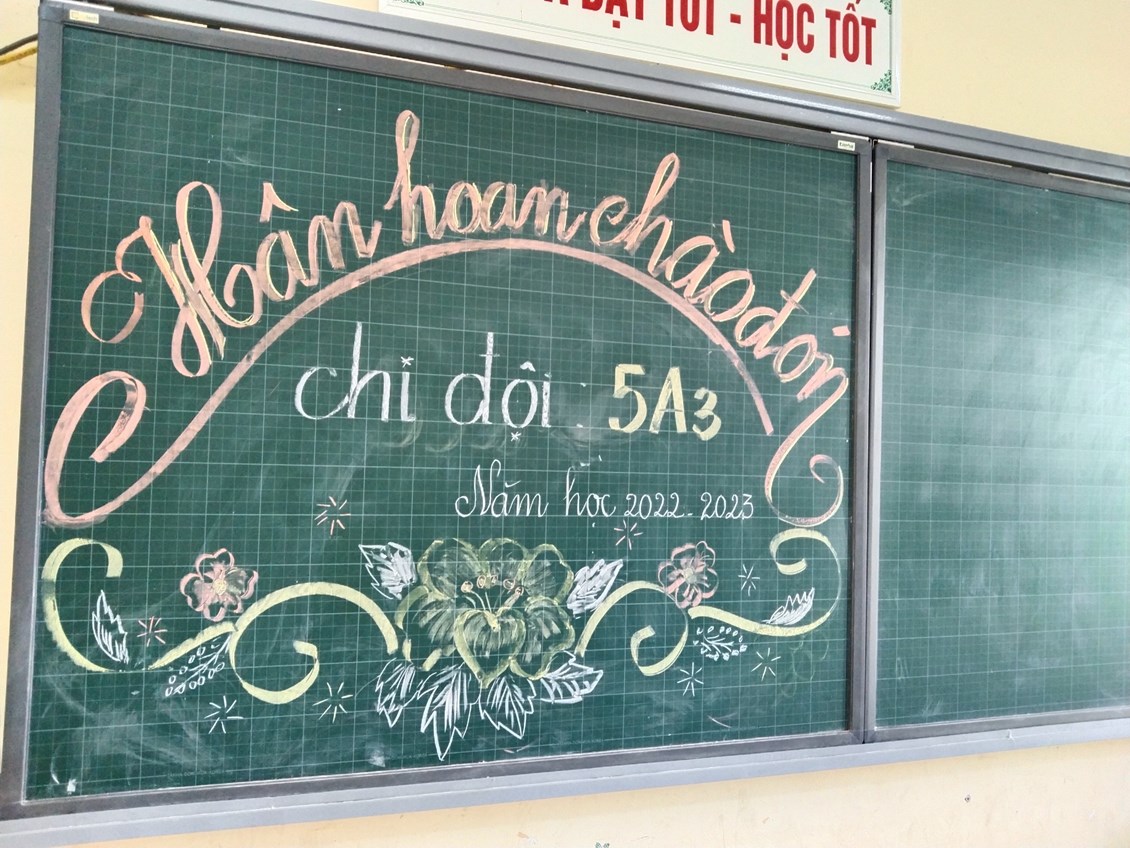 DẠY TỐT - HỌC TỐT
Hân hoan chào đón
chi đội : 5A3
Năm học 2022-2023